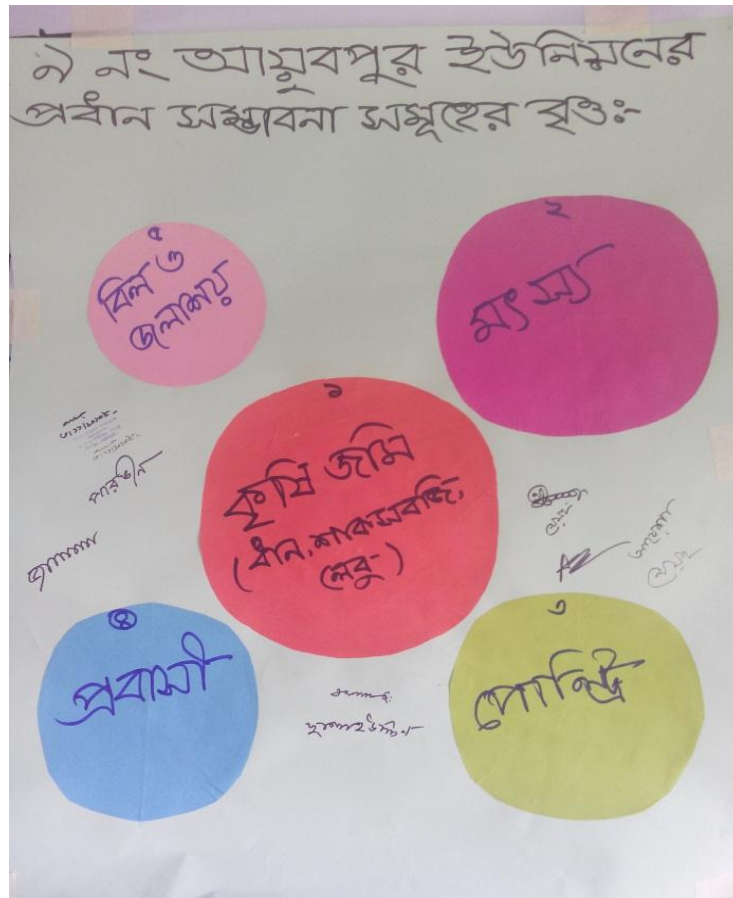 ৯ নং আয়ুবপুর ইউনিয়নের
প্রধান সম্ভাবনা সমূহের বৃত্তঃ-
৫
বিল ও
জলাশয়
২
মৎস্য
১
কৃষি জমি
(ধান, শাকসবজি,
লেবু-)
পারভীন
৪
প্রবাসী
৩
পোল্ট্রি